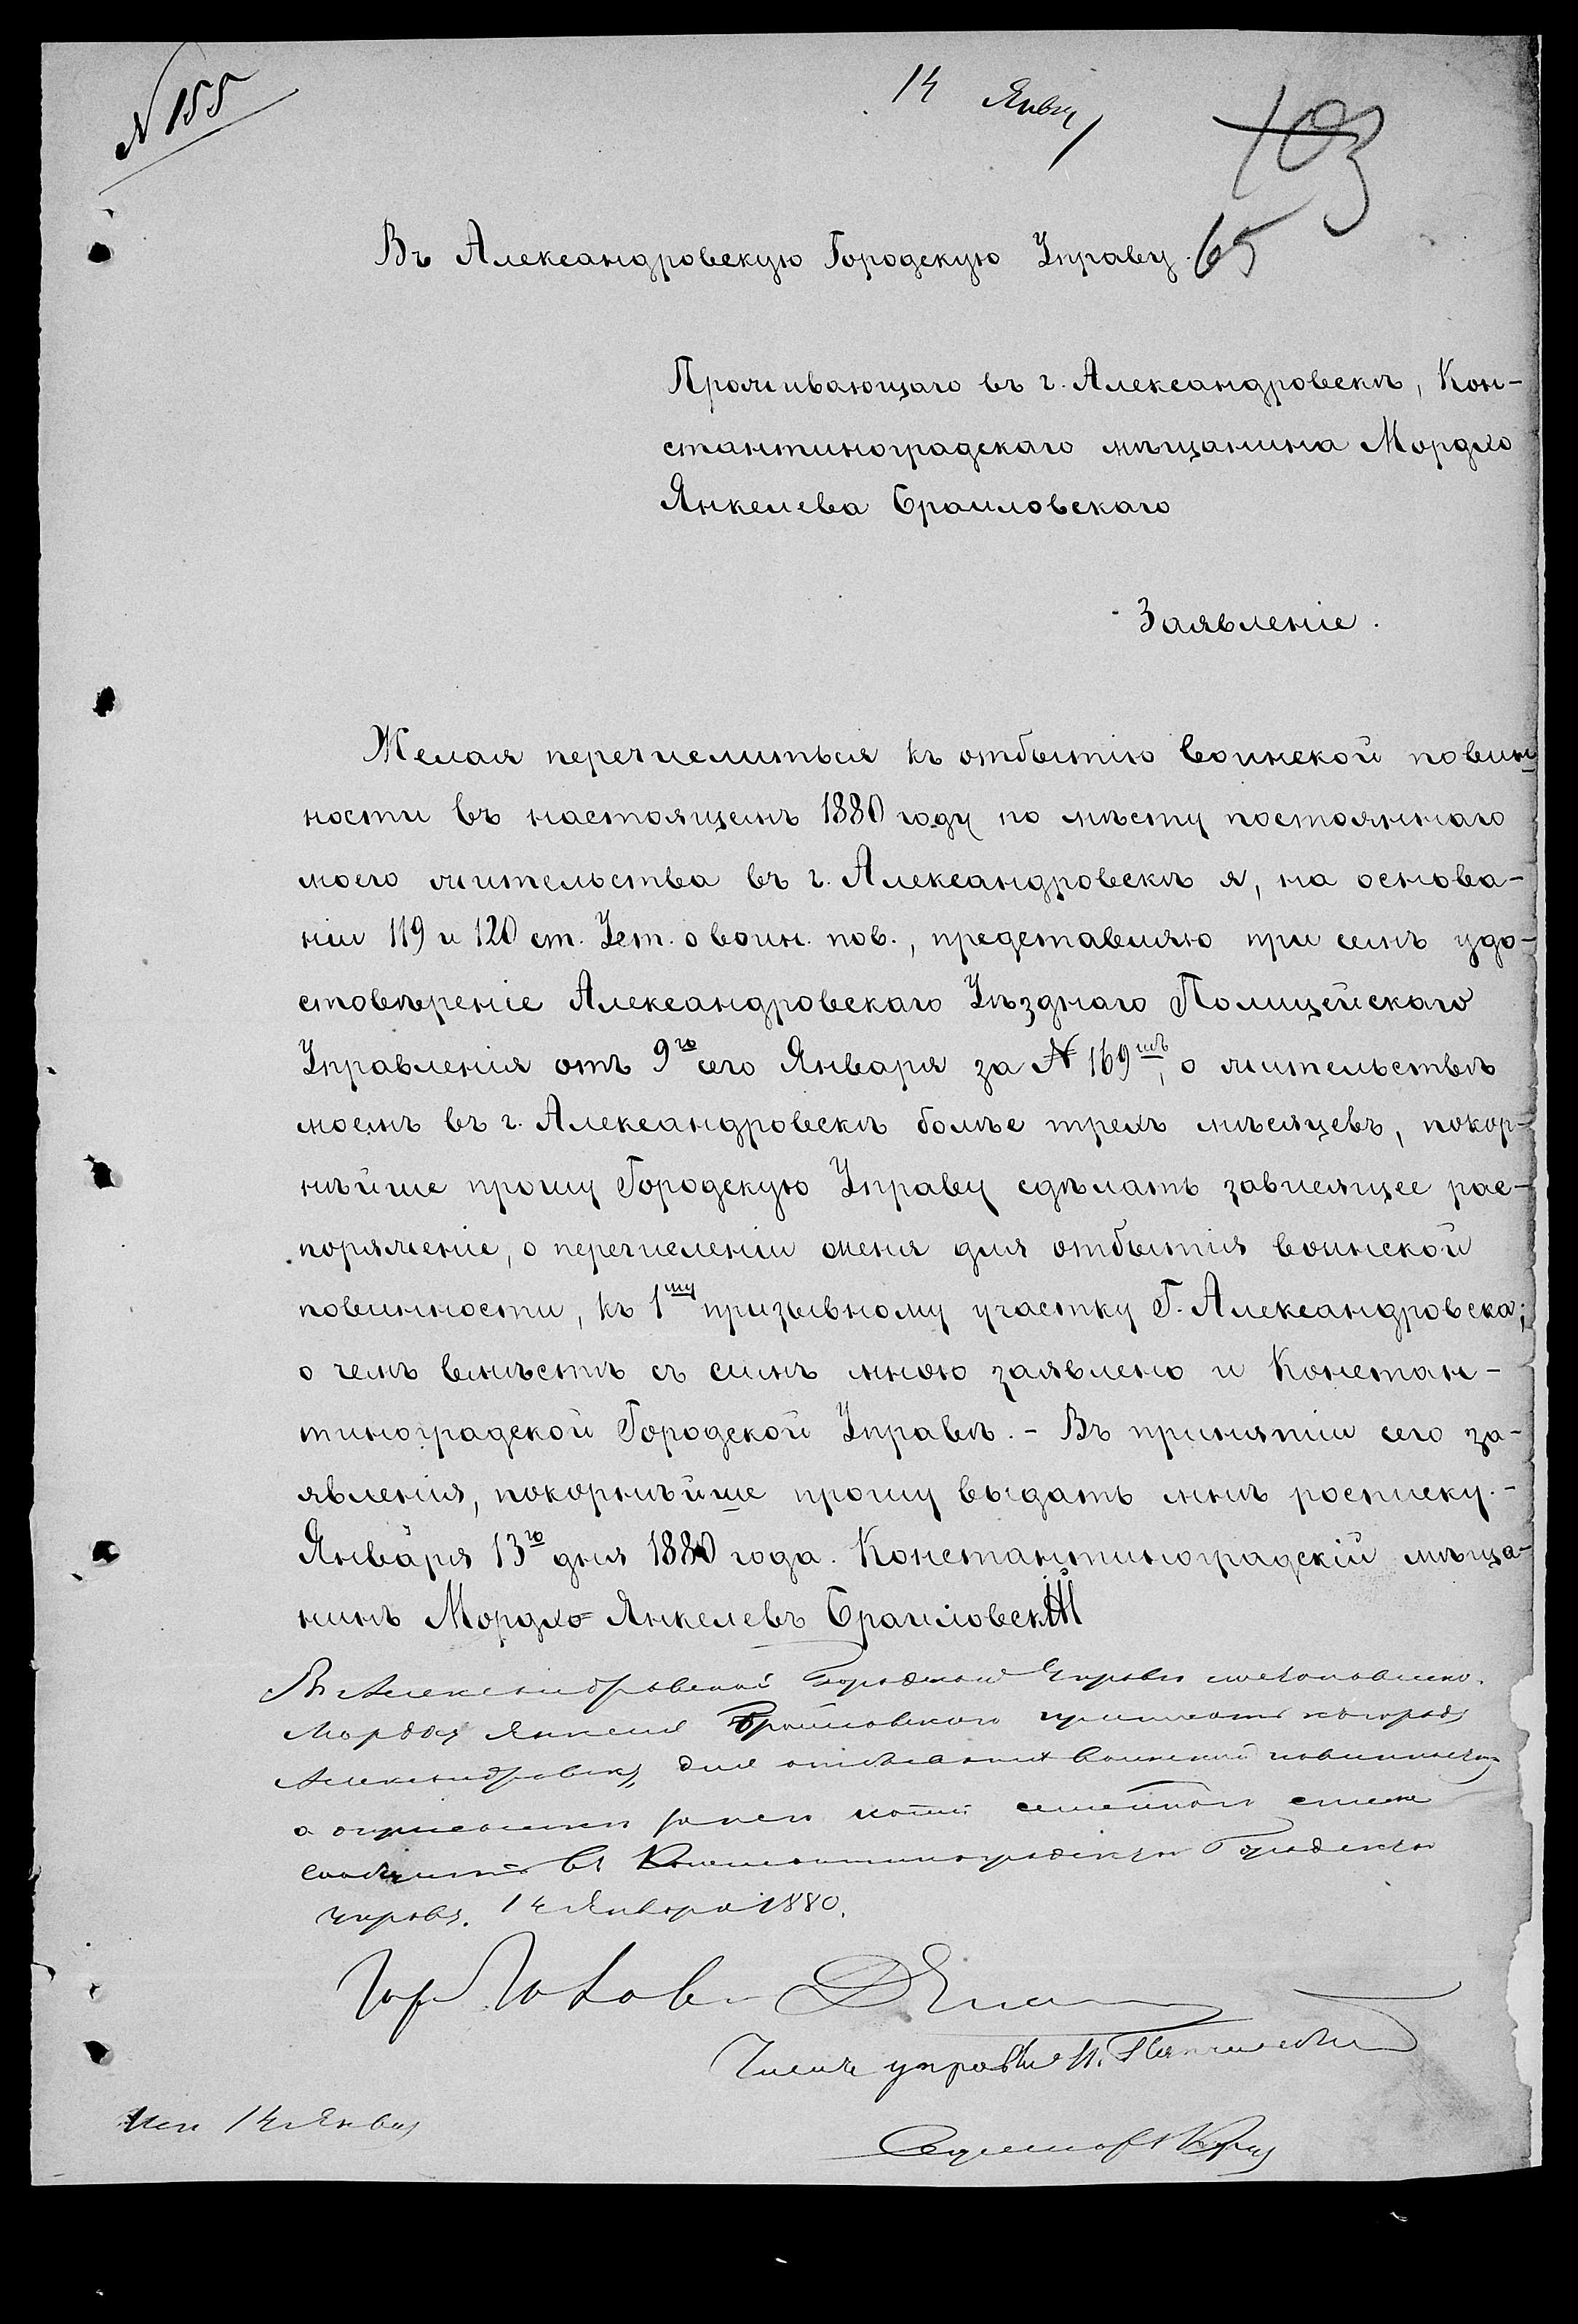 N 155
14 Янвр
103
65
Въ Александровскую Городскую Управу.
Проживающаго въ г. Александровскѣ, Кон-
стантиноградскаго мѣщанина Мордхо
Янкелева Браиловскаго
Заявленіе.
Желая перечислиться къ отбытію воинской повин-
ности въ настоящемъ 1880 году по мѣсту постояннаго
моего жительства въ г. Александровскѣ я, на основа-
ніи 119 и 120 ст. Уст. о воин. пов., представляю при семъ удо-
стовѣреніе Александровскаго Уѣзднаго Полицейскаго
Управленія отъ 9го сего Января за N 169мъ, о жительствѣ
моемъ въ г. Александровскѣ болѣе трехъ мѣсяцевъ, покор-
нѣйше прошу Городскую Управу сдѣлать зависящее рас-
поряженіе, о перечисленіи меня для отбытія воинской
повинности, къ 1му призывному участку Г. Александровска;
о чемъ вмѣстѣ съ симъ мною заявлено и Констан-
тиноградской Городской Управѣ. - Въ принятіи сего за-
явленія, покорнѣйше прошу выдать мнѣ росписку. -
Января 13го дня 1880 года. Константиноградскій мѣща-
нинъ Мордхо= Янкелевъ Браиловскій
Въ Александровской Городской Управѣ
Мордхя Янкеля Браиловскаго
Александровску, для воинской повинности
о семейнаго
въ Константиноградскую Городскую
Управу. 14 Января 1880.
Членъ управы
14 Янвр